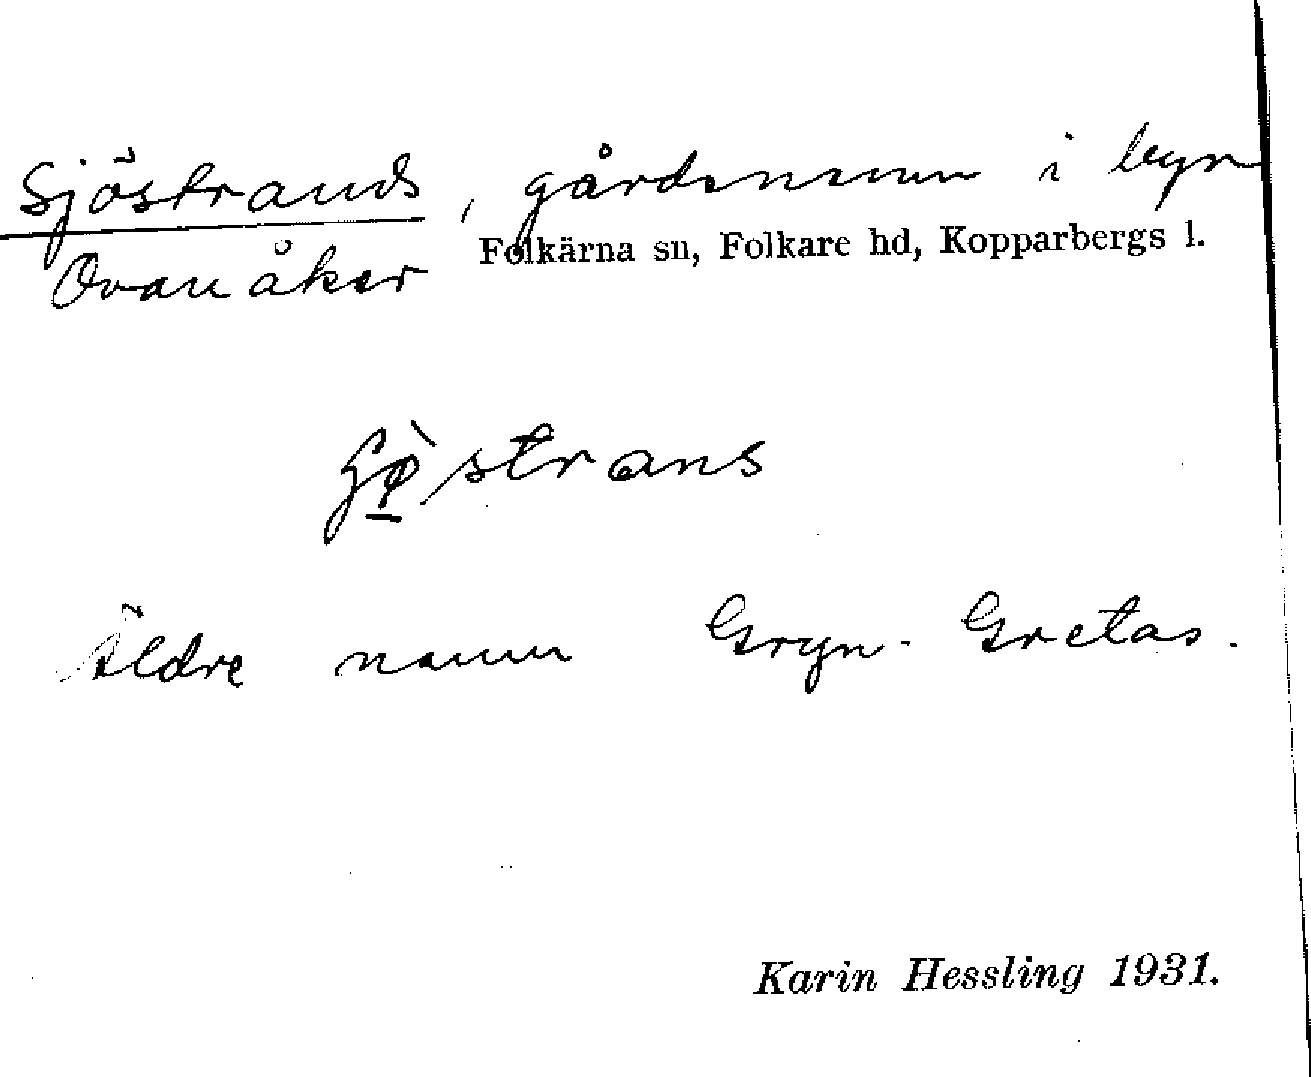 Sjöstrands, gårdsnamn i byn
Folkärna sn, Folkare hd, Kopparbergs l.
Ovanåker
strans
Äldre namn Gryn-Gretas.
Karin Hessling 1931.